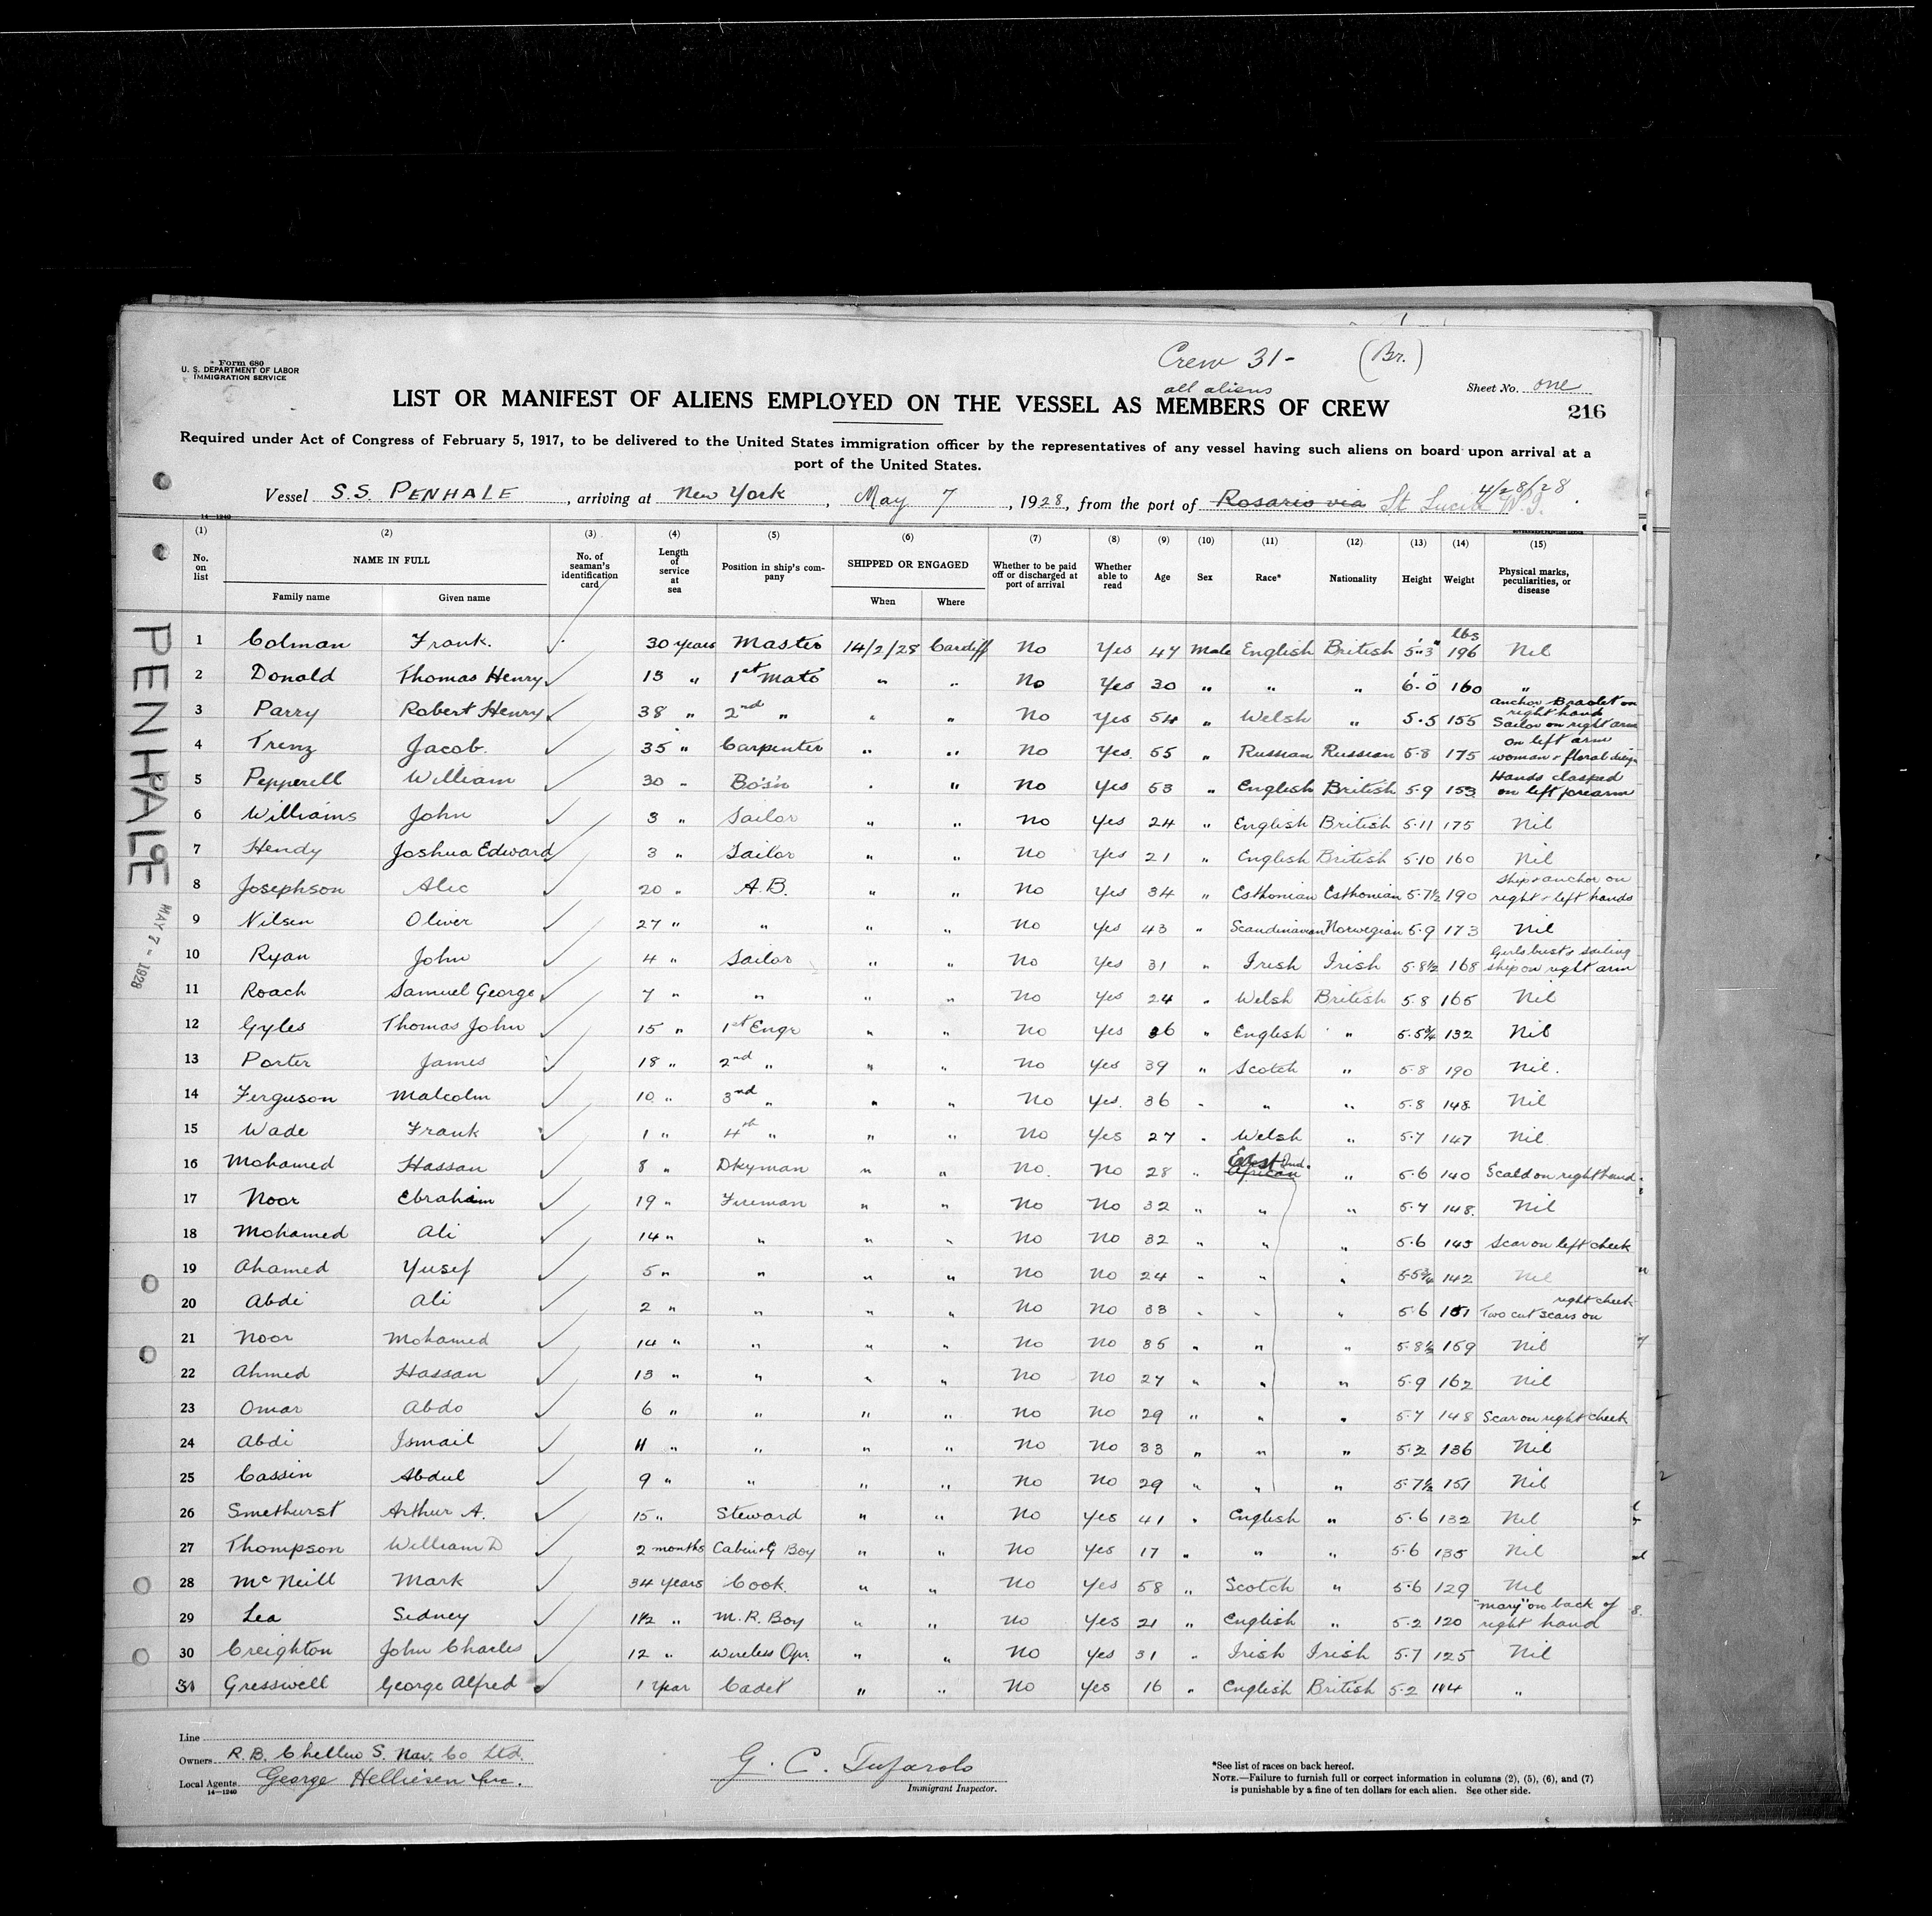 Form 680
U. S. DEPARTMENT OF LABOR
IMMIGRATION SERVICE
Crew 31- (Br.)
all aliens
Sheet No. one
LIST OR MANIFEST OF ALIENS EMPLOYED ON THE VESSEL AS MEMBERS OF CREW
216
Required under Act of Congress of February 5, 1917, to be delivered to the United States immigration officer by the representatives of any vessel having such aliens on board upon arrival at a
port of the United States.
4/28/28
Vessel S.S. PENHALE, arriving at New York, May 7, 1928, from the port of Rosario via St Lucia W.I.
14-1240
(1) (2) (3) (4) (5) (6) (7) (8) (9) (10) (11) (12) (13) (14) (15)
No. on list NAME IN FULL No. of seaman's identification card Length of service at sea Position in ship's company SHIPPED OR ENGAGED Whether to be paid off or discharged at port of arrival Whether able to read Age Sex Race* Nationality Height Weight Physical marks, peculiarities, or disease
Family name Given name When Where
PENHALE
MAY 7 - 1928
1 Colman Frank. 30 years Master 14/2/28 Cardiff No Yes 47 Male English British 5'.3" lbs 196 Nil
2 Donald Thomas Henry 13 " 1st Mate " " No Yes 30 " " " 6'.0 160 "
3 Parry Robert Henry 38 " 2nd " " " No Yes 54 " Welsh " 5.5 155 anchor Bracelet on right hand Sailor on right arm
4 Trenz Jacob. 35 " Carpenter " " No Yes. 55 " Russian Russian 5.8 175 on left arm woman & floral design
5 Pepperell William 30 " Bo's'n " " No Yes 53 " English British 5.9 153 Hands clasped on left forearm
6 Williams John 3 " Sailor " " No Yes 24 " English British 5.11 175 Nil
7 Hendy Joshua Edward 3 " Sailor " " No Yes 21 " English British 5.10 160 Nil
8 Josephson Alec 20 " A.B. " " No Yes 34 " Esthonian Esthonian 5.7½ 190 Ship & anchor on right & left hands
9 Nilsen Oliver 27 " " " " No Yes 43 " Scandinavian Norwegian 5.9 173 Nil
10 Ryan John 4 " Sailor " " No Yes 31 " Irish Irish 5.8½ 168 Girls bust & sailing ship on right arm
11 Roach Samuel George 7 " " " " No Yes 24 " Welsh British 5.8 165 Nil
12 Gyles Thomas John 15 " 1st Engr " " No Yes 36 " English " 5.5¾ 132 Nil
13 Porter James 18 " 2nd " " " No Yes 39 " Scotch " 5.8 190 Nil.
14 Ferguson Malcolm 10 " 3rd " " " No Yes. 36 " " " 5.8 148 Nil
15 Wade Frank 1 " 4th " " " No Yes 27 " Welsh " 5.7 147 Nil
16 Mohamed Hassan 8 " Dkyman " " No. No 28 " African East Ind. " 5.6 140 Scald on right hand
17 Noor Ebrahim 19 " Fireman " " No No 32 " " " 5.7 148. Nil
18 Mohamed Ali 14 " " " " No No 32 " " " 5.6 145 Scar on left cheek
19 Ahamed Yusef 5 " " " " No No 24 " " " 5.5¾ 142 Nil
20 Abdi Ali 2 " " " " No No 33 " " " 5.6 151 Two cut scars on right cheek
21 Noor Mohamed 14 " " " " No No 35 " " " 5.8½ 159 Nil
22 Ahmed Hassan 13 " " " " No No 27 " " " 5.9 162 Nil
23 Omar Abdo 6 " " " " No No 29 " " " 5.7 148 Scar on right cheek
24 Abdi Ismail 11 " " " " No No 33 " " " 5.2 136 Nil
25 Cassin Abdul 9 " " " " No No 29 " " " 5.7½ 151 Nil
26 Smethurst Arthur A. 15 " Steward " " No Yes 41 " English " 5.6 132 Nil
27 Thompson William D 2 months Cabin & G Boy " " No Yes 17 " " " 5.6 135 Nil
28 McNeill Mark 34 years Cook. " " No Yes 58 " Scotch " 5.6 129 Nil
29 Lea Sidney 1½ " M.R. Boy " " No Yes 21 " English " 5.2 120 "mary" on back of right hand
30 Creighton John Charles 12 " Wireless Opr. " " No Yes 31 " Irish Irish 5.7 125 Nil
31 Gresswell George Alfred 1 Year Cadet " " No Yes 16 " English British 5.2 144 "
Line
Owners R. B. Chellew S. Nav. Co Ltd.
Local Agents George Helliesen Inc.
14-1240
G. C. Tufarolo
Immigrant Inspector.
*See list of races on back hereof.
NOTE.—Failure to furnish full or correct information in columns (2), (5), (6), and (7)
is punishable by a fine of ten dollars for each alien. See other side.